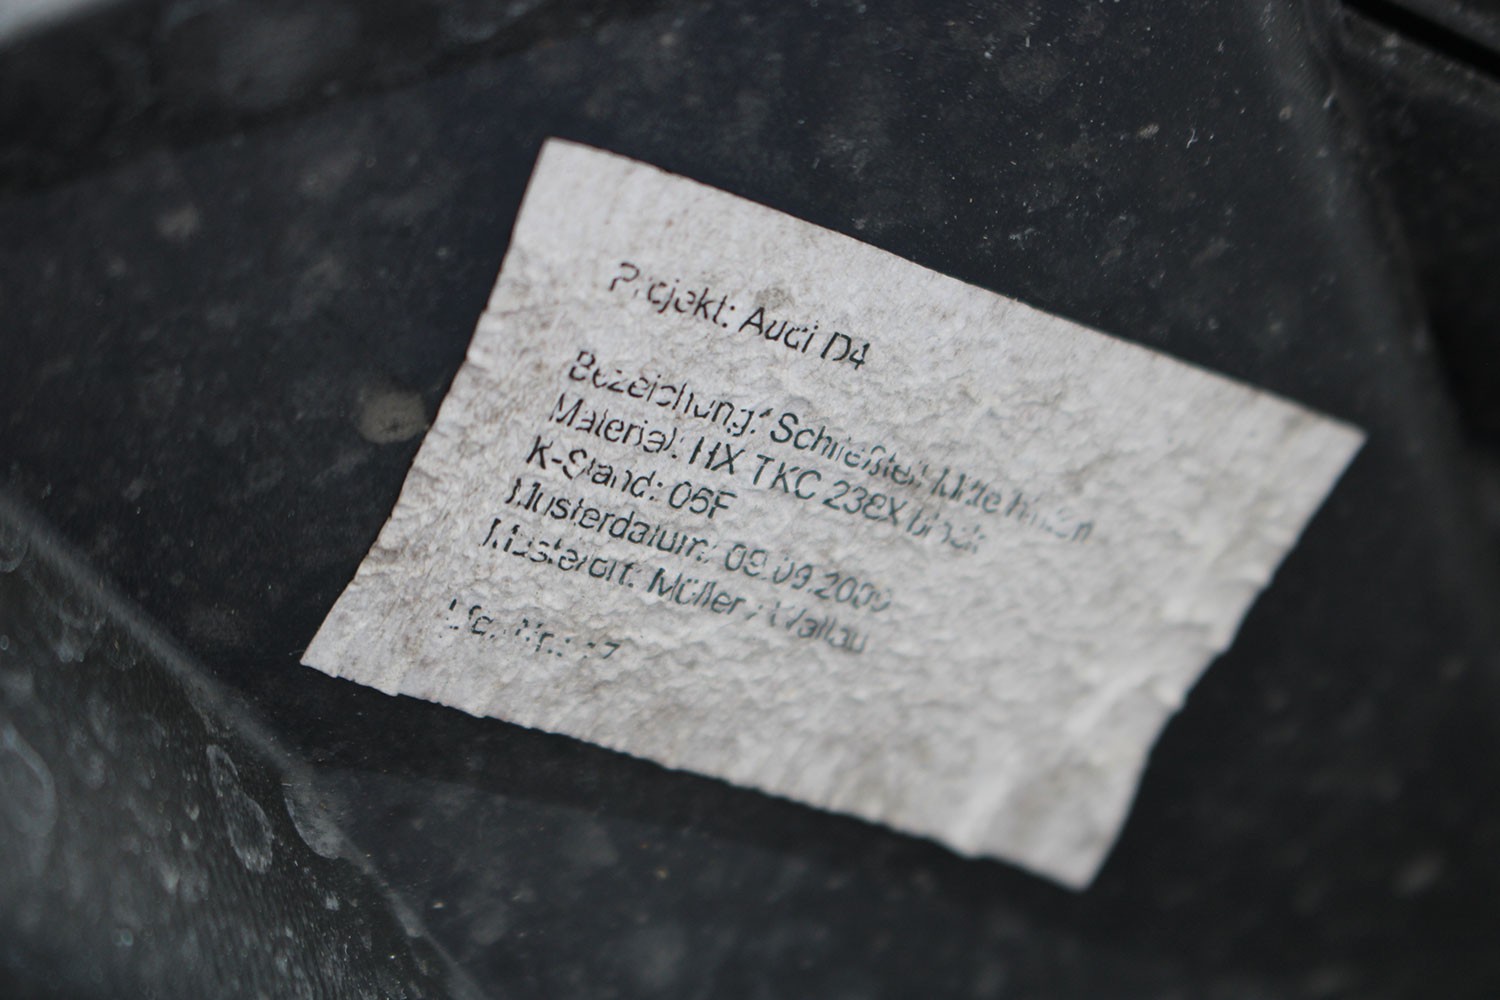 Projekt: Audi D4
Bezeichung: Schließteil Mitte hinten
Material: HX TKC 238X black
K-Stand: 06F
Musterdatum: 09.09.2009
Musterort: Müller / Wallau